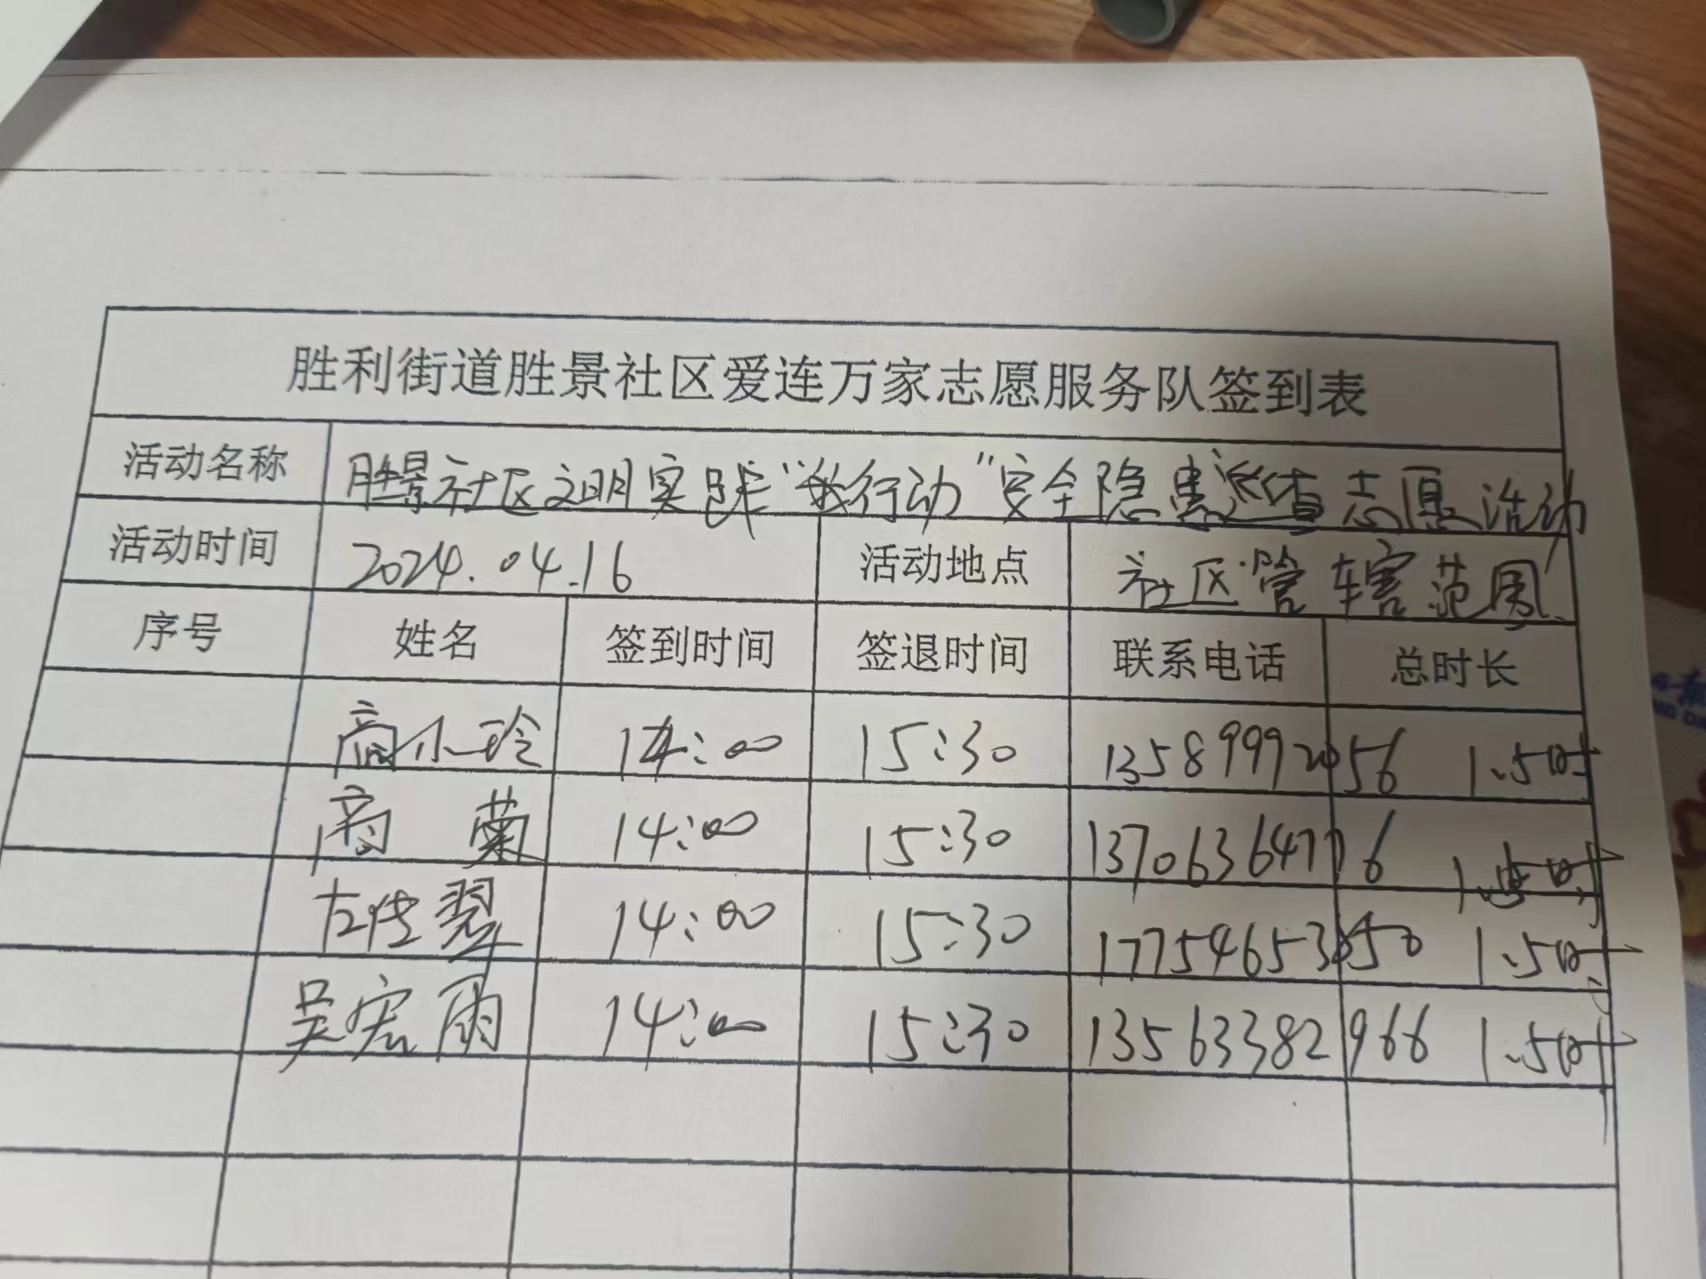 胜利街道胜景社区爱连万家志愿服务队签到表
活动名称 胜景社区文明实践“我行动”安全隐患巡查志愿活动
活动时间 2024.04.16 活动地点 社区管辖范围
序号 姓名 签到时间 签退时间 联系电话 总时长
高小玲 14:00 15:30 13589992056 1.5时
高菊 14:00 15:30 13706364776 1.5时
左佳翠 14:00 15:30 17754653850 1.5时
吴宏雨 14:00 15:30 13563382966 1.5时